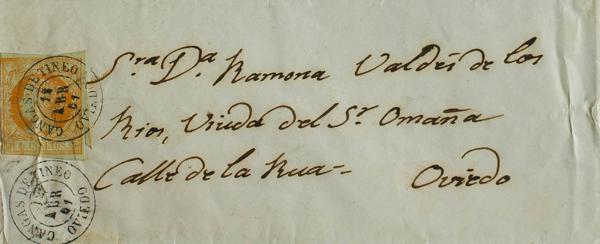 Sra. Da. Ramona Valdés de los
Rios, Viuda del Sr. Omaña
Calle de la Rua- Oviedo
CANGAS DE TINEO
OVIEDO
18
ABR
61
CANGAS DE TINEO
OVIEDO
ABR
61